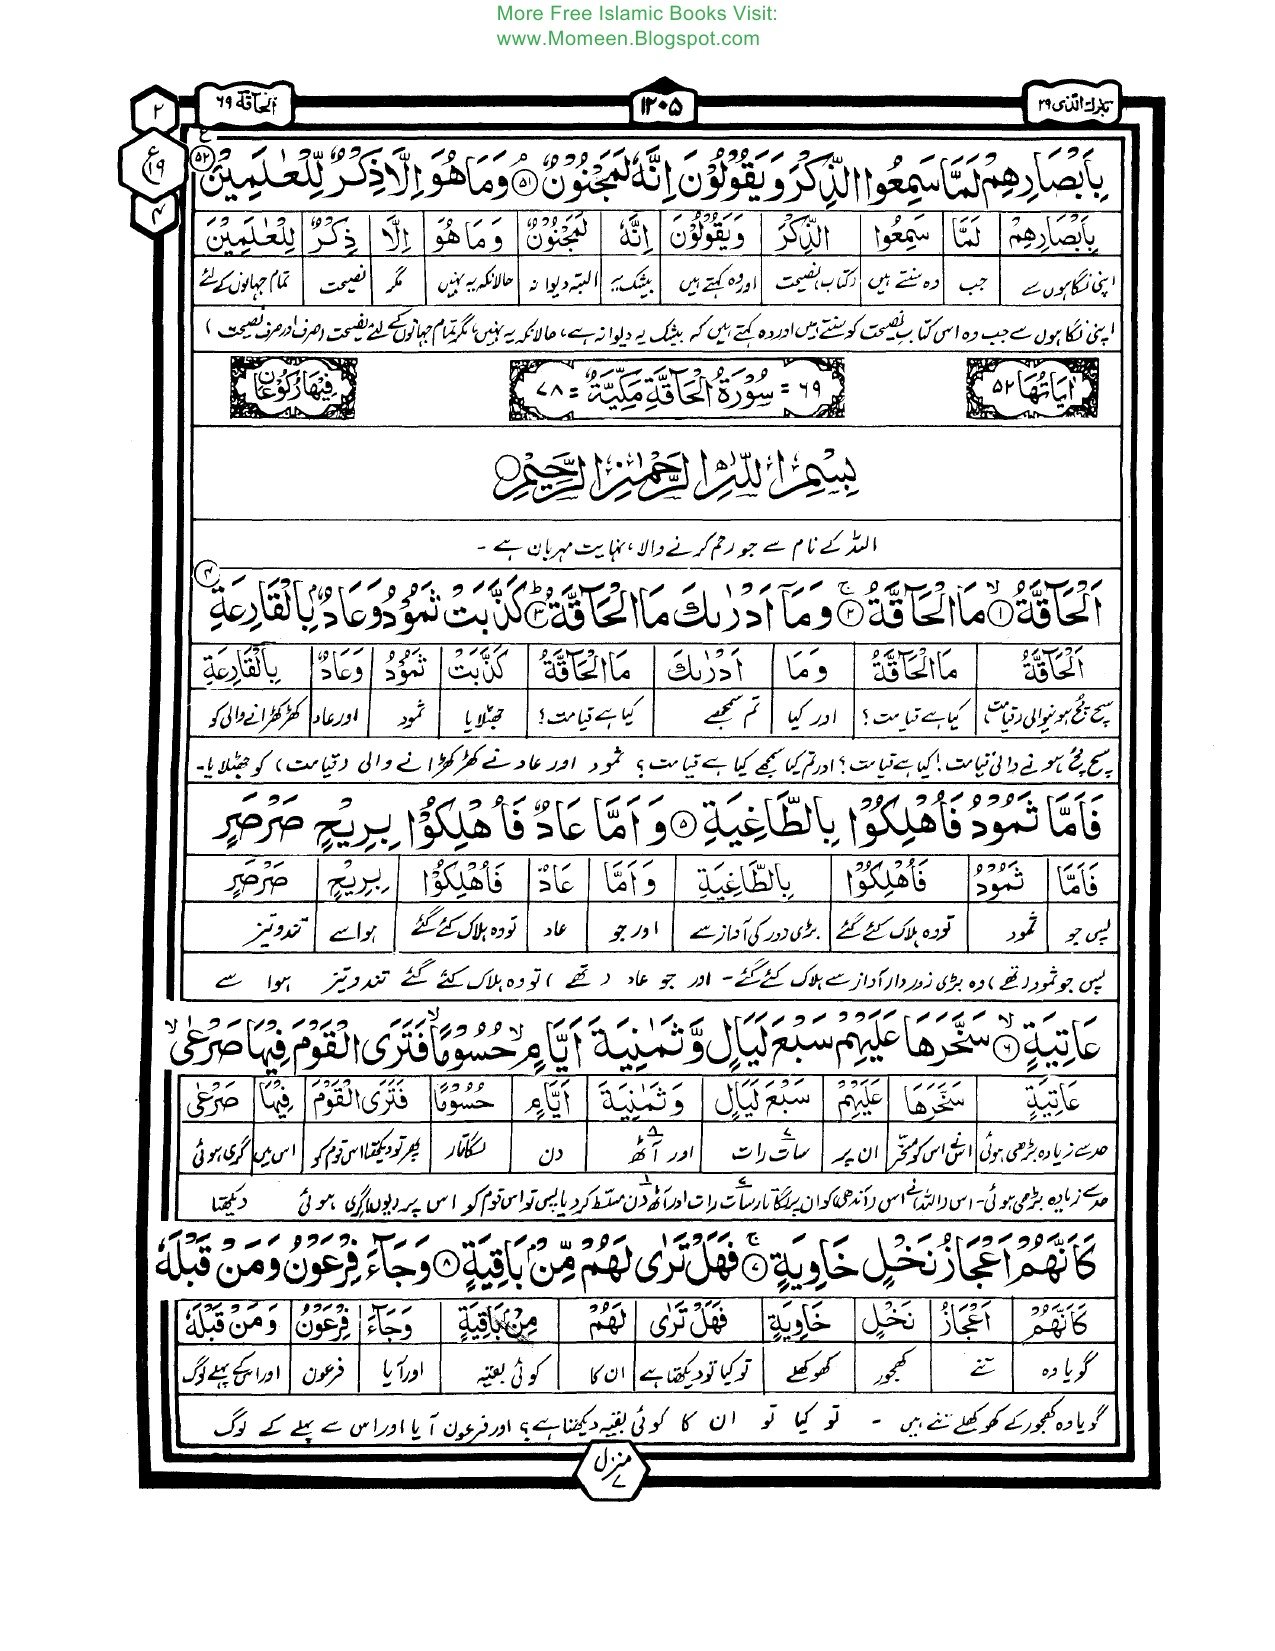 More Free Islamic Books Visit:
www.Momeen.Blogspot.com
تبٰرك الذی ۲۹
۱۲۰۵
الحآقة ۶۹
۲
ع
۱۹
۴
بِاَبْصَارِهِمْ لَمَّا سَمِعُوا الذِّكْرَ وَيَقُوْلُوْنَ اِنَّهٗ لَمَجْنُوْنٌ ۵۱ وَمَا هُوَ اِلَّا ذِكْرٌ لِّلْعٰلَمِيْنَ ۵۲
بِاَبْصَارِهِمْ لَمَّا سَمِعُوا الذِّكْرَ وَيَقُوْلُوْنَ اِنَّهٗ لَمَجْنُوْنٌ وَمَا هُوَ اِلَّا ذِكْرٌ لِلْعٰلَمِيْنَ
اپنی نگاہوں سے جب وہ سنتے ہیں (کتاب) نصیحت اور وہ کہتے ہیں بیشک یہ البتہ دیوانہ حالانکہ یہ نہیں مگر نصیحت تمام جہانوں کے لئے
اپنی نگاہوں سے جب وہ اس کتاب نصیحت کو سنتے ہیں اور وہ کہتے ہیں کہ بیشک یہ دیوانہ ہے، حالانکہ یہ نہیں، مگر تمام جہانوں کے لئے نصیحت (صرف اور صرف نصیحت)
اٰيَاتُهَا ۵۲
۶۹ = سُوْرَةُ الْحَاقَّةِ مَكِّيَّةٌ = ۷۸
فِيْهَا رُكُوْعَانِ
بِسْمِ اللّٰهِ الرَّحْمٰنِ الرَّحِيْمِ
اللہ کے نام سے جو رحم کرنے والا، نہایت مہربان ہے ۔
اَلْحَآقَّةُ ۱ مَا الْحَآقَّةُ ۲ وَمَآ اَدْرٰىكَ مَا الْحَآقَّةُ ۳ كَذَّبَتْ ثَمُوْدُ وَعَادٌۢ بِالْقَارِعَةِ ۴
اَلْحَآقَّةُ مَا الْحَآقَّةُ وَمَا اَدْرٰىكَ مَا الْحَآقَّةُ كَذَّبَتْ ثَمُوْدُ وَعَادٌۢ بِالْقَارِعَةِ
سچ مچ ہونیوالی (قیامت) کیا ہے قیامت؟ اور کیا تم سمجھے کیا ہے قیامت؟ جھٹلایا ثمود اور عاد کھڑکھڑانے والی کو
سچ مچ ہونے والی قیامت! کیا ہے قیامت؟ اور تم کیا سمجھے کیا ہے قیامت؟ ثمود اور عاد نے کھڑکھڑانے والی (قیامت) کو جھٹلایا۔
فَاَمَّا ثَمُوْدُ فَاُهْلِكُوْا بِالطَّاغِيَةِ ۵ وَاَمَّا عَادٌ فَاُهْلِكُوْا بِرِيْحٍ صَرْصَرٍ
فَاَمَّا ثَمُوْدُ فَاُهْلِكُوْا بِالطَّاغِيَةِ وَاَمَّا عَادٌ فَاُهْلِكُوْا بِرِيْحٍ صَرْصَرٍ
پس جو ثمود تو وہ ہلاک کئے گئے بڑی زور کی آواز سے اور جو عاد تو وہ ہلاک کئے گئے ہوا سے تند و تیز
پس جو ثمود (تھے) وہ بڑی زوردار آواز سے ہلاک کئے گئے۔ اور جو عاد (تھے) تو وہ ہلاک کئے گئے تند و تیز ہوا سے
عَاتِيَةٍ ۶ سَخَّرَهَا عَلَيْهِمْ سَبْعَ لَيَالٍ وَّثَمٰنِيَةَ اَيَّامٍ حُسُوْمًا فَتَرَى الْقَوْمَ فِيْهَا صَرْعٰى
عَاتِيَةٍ سَخَّرَهَا عَلَيْهِمْ سَبْعَ لَيَالٍ وَثَمٰنِيَةَ اَيَّامٍ حُسُوْمًا فَتَرَى الْقَوْمَ فِيْهَا صَرْعٰى
حد سے زیادہ بڑھی ہوئی اس نے اس کو مسخر ان پر سات رات اور آٹھ دن لگاتار پھر تو دیکھتا اس قوم کو اس میں گری ہوئی
حد سے زیادہ بڑھی ہوئی۔ اس (اللہ) نے اس (آندھی) کو ان پر لگاتار سات رات اور آٹھ دن مسلط کر دیا پس تو اس قوم کو اس پر (یوں) گری ہوئی دیکھتا
كَاَنَّهُمْ اَعْجَازُ نَخْلٍ خَاوِيَةٍ ۷ فَهَلْ تَرٰى لَهُمْ مِّنْۢ بَاقِيَةٍ ۸ وَجَآءَ فِرْعَوْنُ وَمَنْ قَبْلَهٗ
كَاَنَّهُمْ اَعْجَازُ نَخْلٍ خَاوِيَةٍ فَهَلْ تَرٰى لَهُمْ مِنْۢ بَاقِيَةٍ وَجَآءَ فِرْعَوْنُ وَمَنْ قَبْلَهٗ
گویا وہ تنے کھجور کھوکھلے تو کیا تو دیکھتا ہے ان کا کوئی بقیہ اور آیا فرعون اور اس کے پہلے لوگ
گویا وہ کھجور کے کھوکھلے تنے ہیں ۔ تو کیا تو ان کا کوئی بقیہ دیکھتا ہے؟ اور فرعون آیا اور اس سے پہلے کے لوگ
منزل ۷